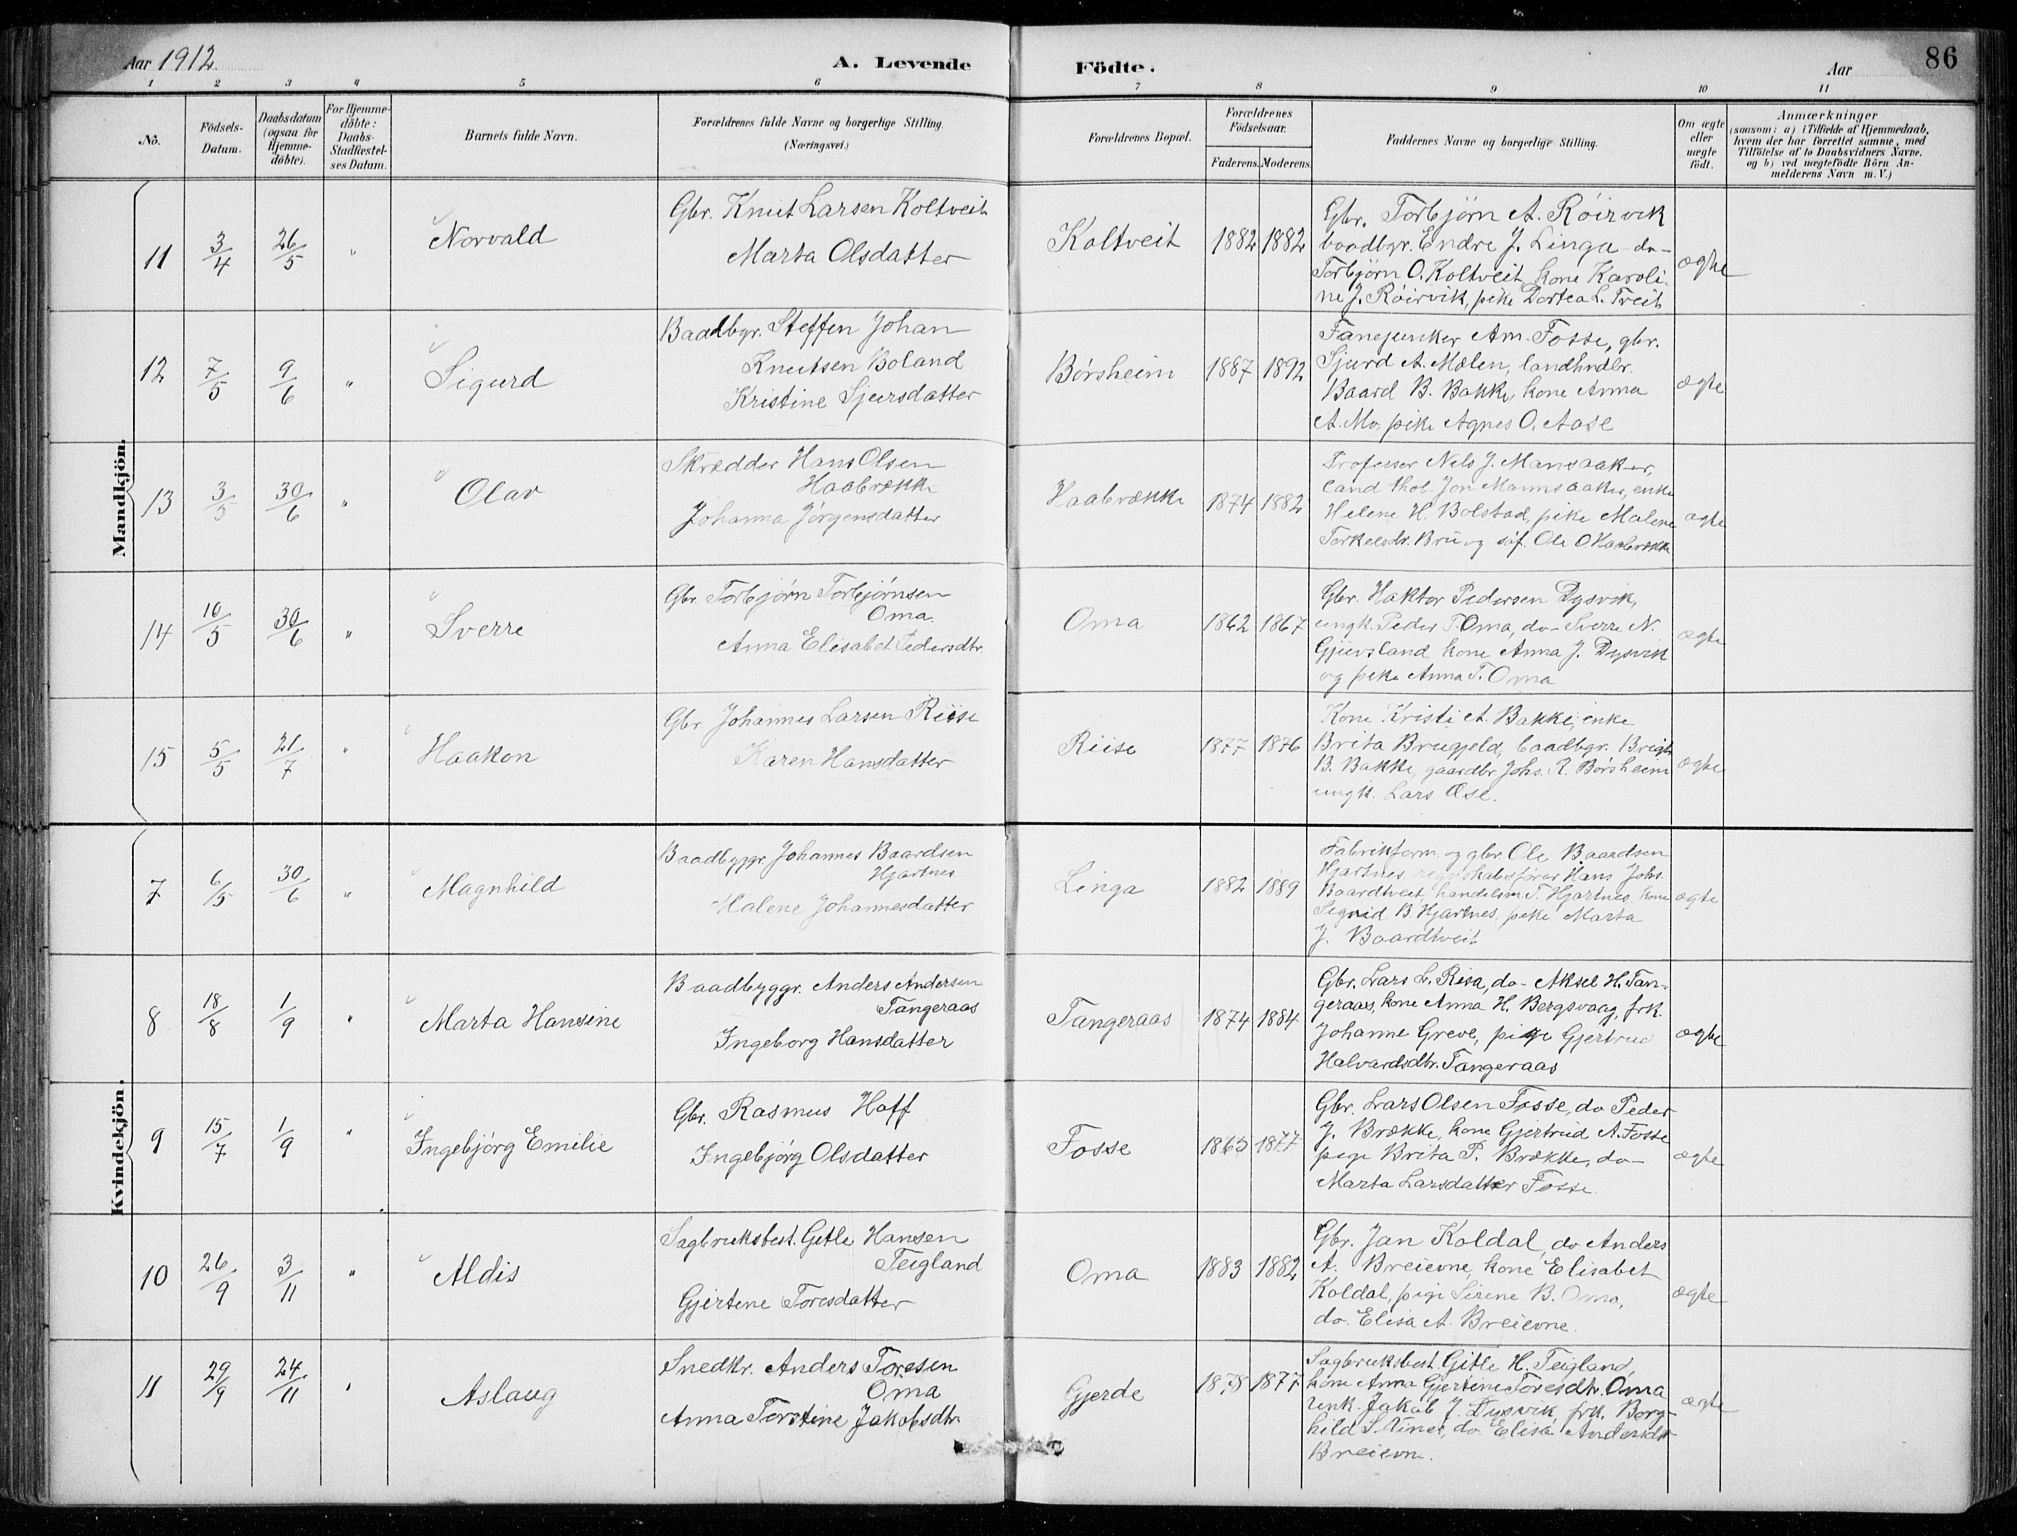 Aar 1912.
A. Levende
Födte.
Aar
86
1 2 3 4 5 6 7 8 9 10 11
No.
Födsels-
Datum.
Daabsdatum
(ogsaa for
Hjemme-
döbte).
For Hjemme-
döbte:
Daabs-
Stadfæstel-
ses Datum.
Barnets fulde Navn.
Forældrenes fulde Navne og borgerlige Stilling.
(Næringsvei.)
Forældrenes Bopæl.
Forældrenes
Födselsaar.
Faderens. Moderens.
Faddernes Navne og borgerlige Stilling.
Om ægte
eller
uægte
födt.
Anmærkninger
(saasom: a) i Tilfælde af Hjemmedaab,
hvem der har forrettet samme, med
Tilföielse af to Daabsvidners Navne.
og b) ved uægtefödte Börn An-
melderens Navn m. V.)
Mandkjön.
11 3/4 26/5 " Norvald
Gbr. Knut Larsen Koltveit
Marta Olsdatter
Koltveit 1882 1882
Gbr. Torbjørn A. Røirvik
baadbgr. Endre J. Linga - do -
Torbjørn O. Koltveit, kone Karoli-
ne J. Røirvik, pike Dortea L. Tveit
ægte
12 7/5 9/6 " Sigurd
Baadbgr. Steffen Johan
Knutsen Boland
Kristine Sjursdatter
Børsheim 1887 1892
Fanejunker Am. Fosse, gbr.
Sjurd A. Mælen, landhndlr.
Baard B. Bakke, kone Anna
A. Mo, pike Agnes O. Aase
ægte
13 3/5 30/6 " Olav
Skrædder Hans Olsen
Haabrække
Johanna Jørgensdatter
Haabrække 1874 1882
Professer Nels J. Mansaaker,
cand. theol. Jon Mannsaaker, enke
Helene H. Bolstad, pike Malene
Torkelsdtr. Bru og Ole O. Haabrække
ægte
14 10/5 30/6 " Sverre
Gbr. Torbjørn Torbjørnsen
Oma.
Anna Elisabet Pedersdtr.
Oma 1862 1867
Gbr. Haktor Pedersen Dysvik,
ungk. Peder T. Oma, do - Sverre N.
Gjuvsland kone Anna J. Dysvik
og pike Anna T. Oma
ægte
15 5/5 21/7 " Haakon
Gbr Johannes Larsen Riise
Karen Hansdatter
Riise 1877 1876
Kone Kristi A. Bakke, enke
Brita Brugjeld, baadbgr. Brigt
B. Bakke, gaardbr. Johs. R. Børsheim
ungk. Lars Øse.
ægte
Kvindekjön.
7 6/5 30/6 " Magnhild
Baadbyggr. Johannes Baardsen
Hjartnes
Malene Johannesdatter
Linga 1882 1889
Fabrikform. og gbr. Ole Baardsen
Hjartnes regnskabsfører Hans Johs.
Baardtveit, handelsm. T. Hjartnes, kone
Signid B. Hjartnes, pike Marta
J. Baardtveit
ægte
8 18/8 1/9 " Marta Hansine
Baadbyggr. Anders Andersen
Tangeraas
Ingeborg Hansdatter
Tangeraas 1874 1884
Gbr. Lars L. Risa, do - Aksel H. Tan-
geraas, kone Anna H. Bergsvaag, frk.
Johanne Greve, pige Gjertrud
Halvardsdtr. Tangeraas
ægte
9 15/7 1/9 " Ingebjørg Emilie
Gbr. Rasmus Hoff
Ingebjørg Olsdatter
Fosse 1865 1877
Gbr. Lars Olsen Fosse, do Peder
J. Brække, kone Gjertrud A. Fosse
pige Brita P. Brække, do -
Marta Larsdatter Fosse.
ægte
10 26/9 3/11 " Aldis
Sagbruksbest. Gitle Hansen
Teigland
Gjertine Toresdatter
Oma 1883 1882
Gbr. Jan Koldal, do Anders
A. Breievne, kone Elisabet
Koldal, pige Sirene B. Oma,
do. Elisa A. Breievne.
ægte
11 29/9 24/11 " Aslaug
Snedkr. Anders Toresen
Oma
Anna Torstine Jakobsdtr
Gjerde 1878 1877
Sagbruksbest. Gitle H. Teigland,
kone Anna Gjertine Toresdtr. Oma
unk. Jakob J. Dysvik, frk. Borg-
hild S. Vines, do Elisa Andersdtr
Breievn.
ægte